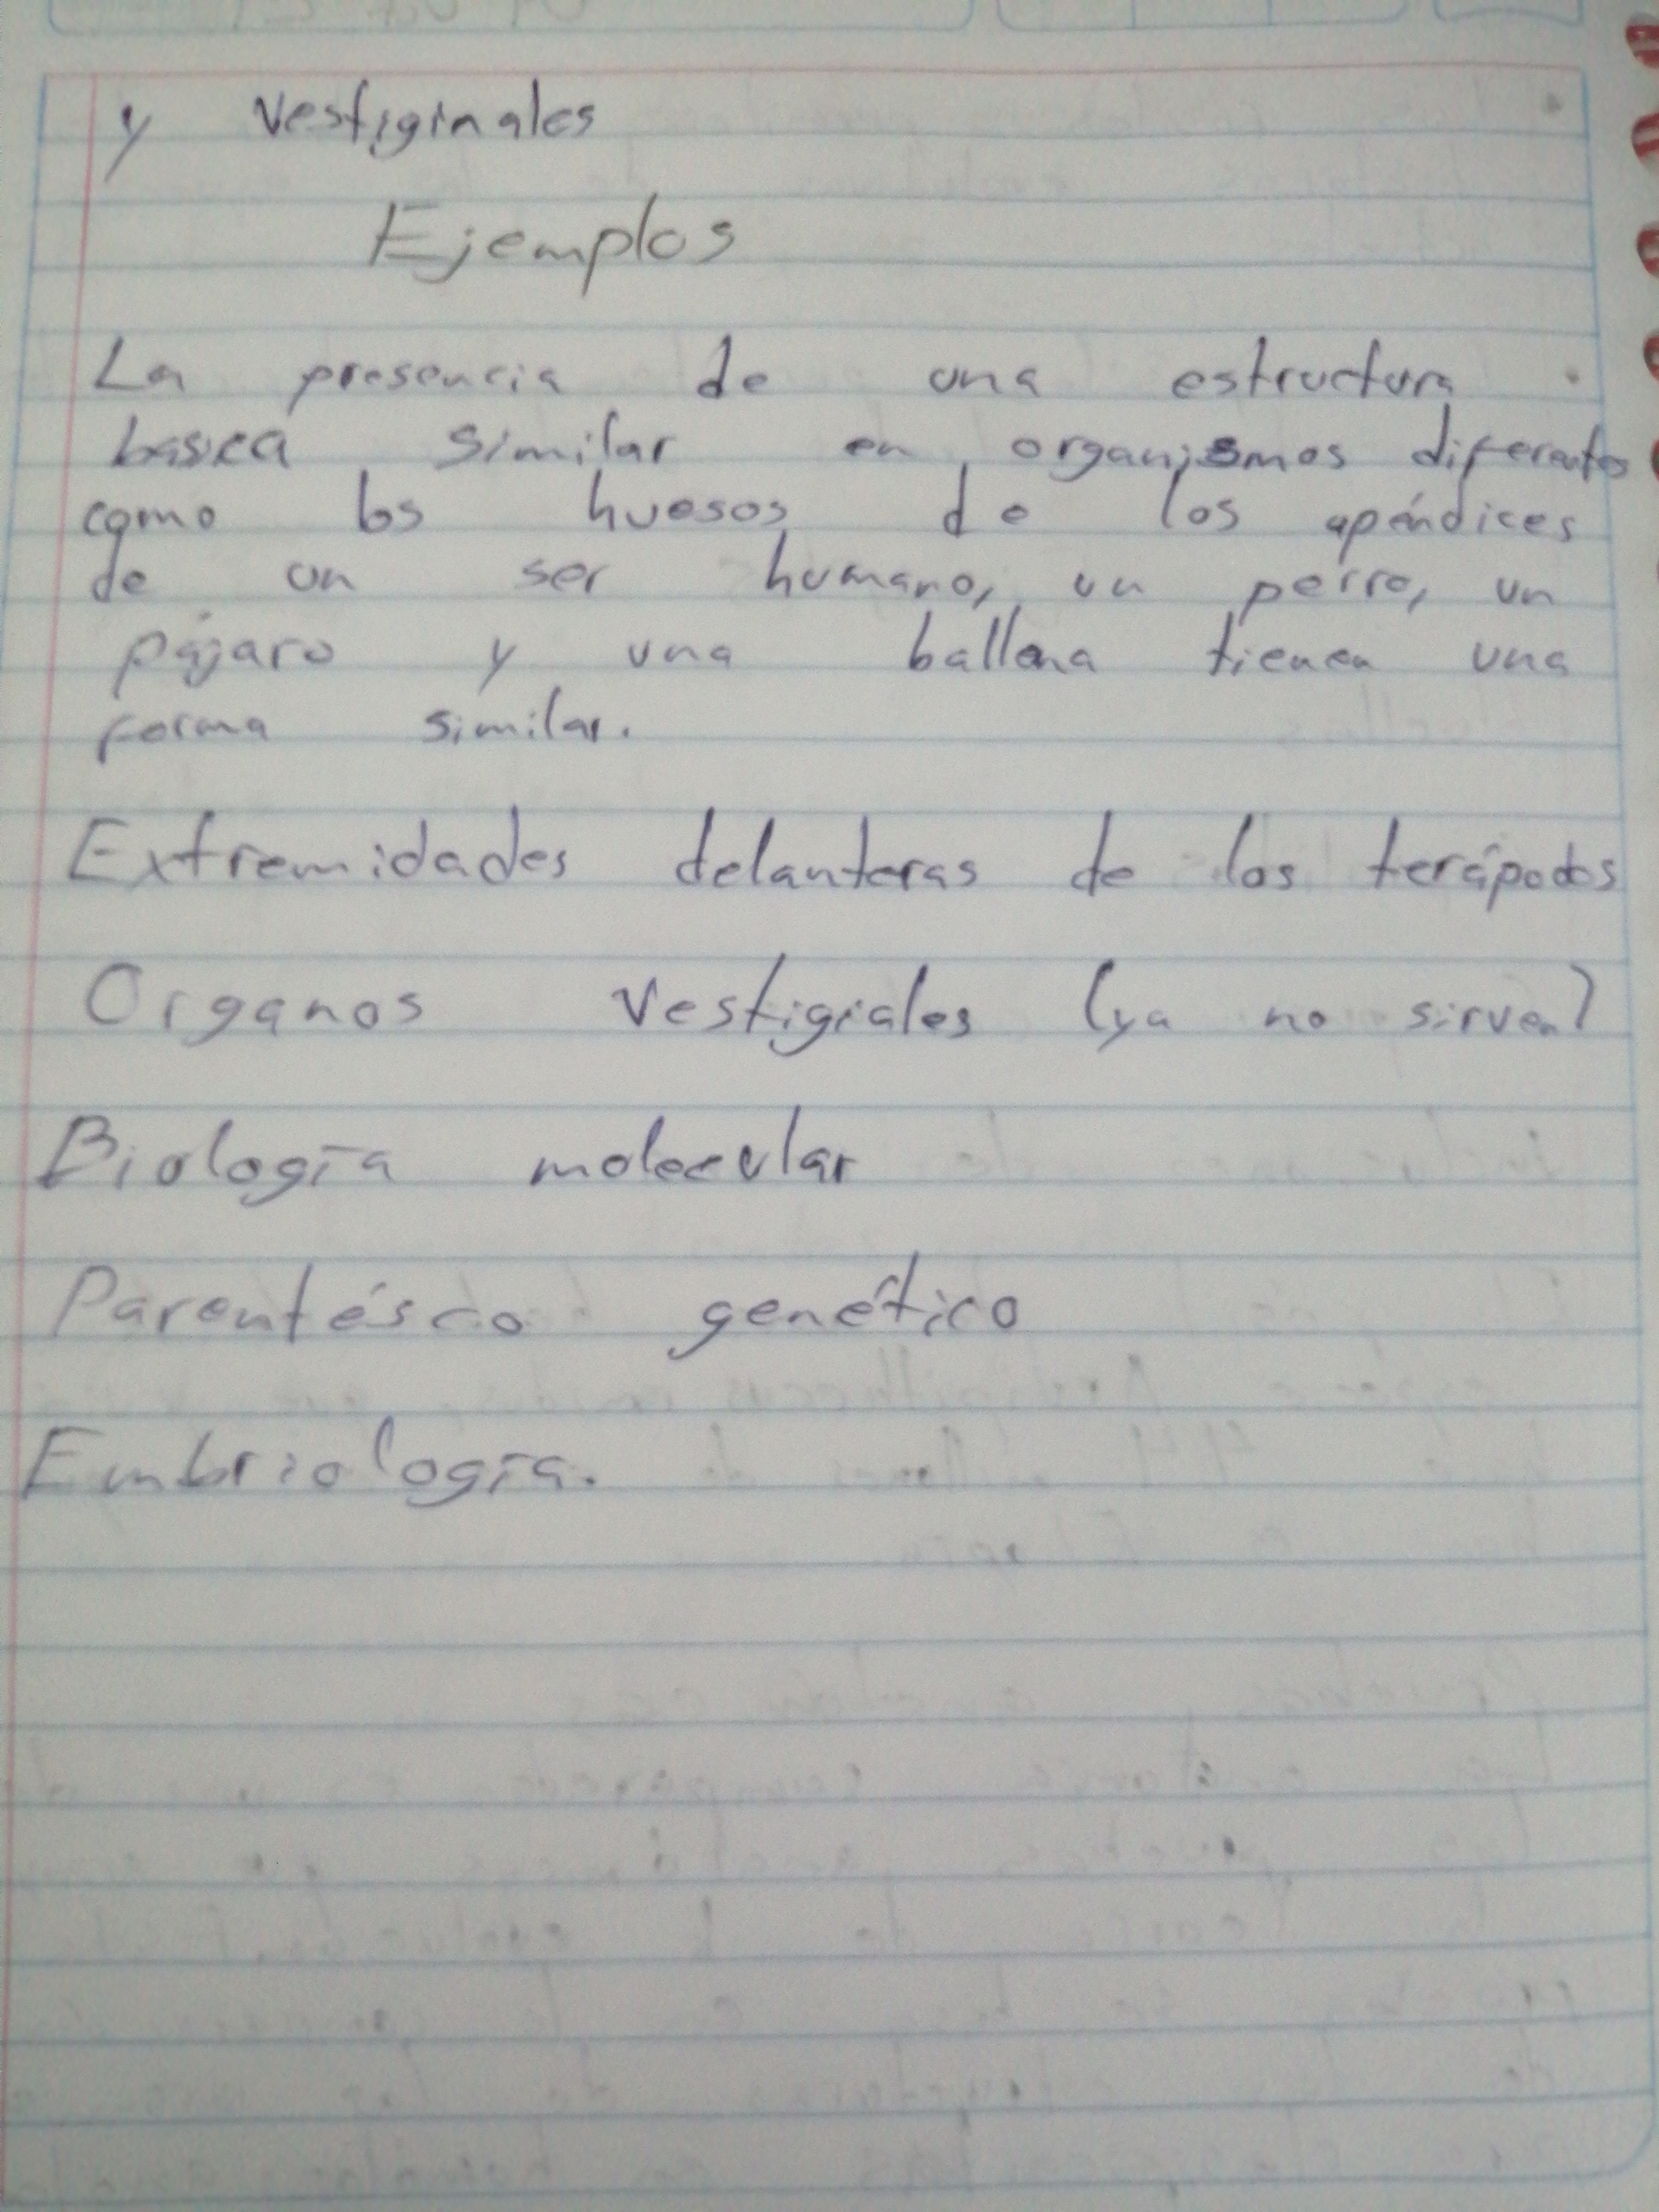 y vestiginales
Ejemplos
La presencia de una estructura
basica similar en organismos diferentes
como los huesos de los apéndices
de un ser humano, un perro, un
pájaro y una ballena tienen una
forma similar.
Extremidades delanteras de los terápodos
Organos vestigiales (ya no sirven)
Biología molecular
Parentésco genético
Embriología.